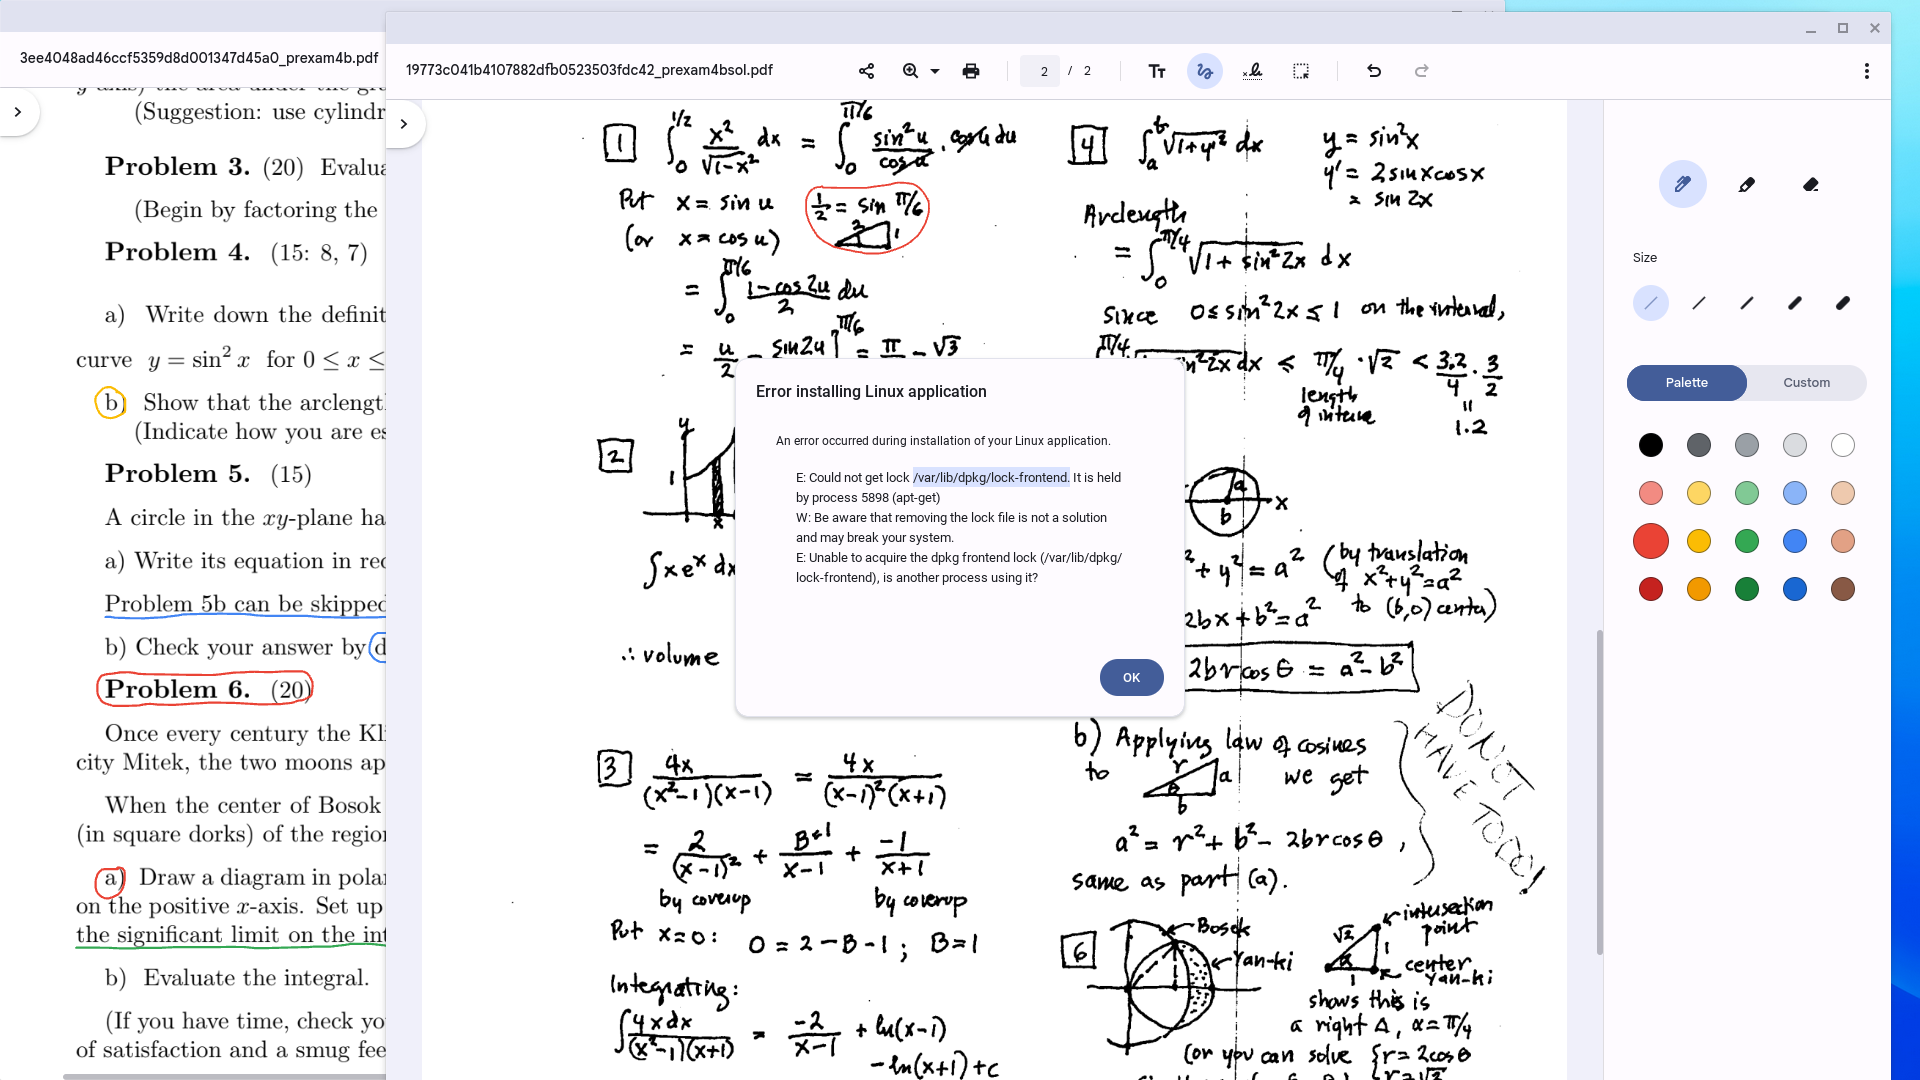 3ee4048ad46ccf5359d8d001347d45a0_prexam4b.pdf
(Suggestion: use cylindr
Problem 3. (20) Evalua
(Begin by factoring the
Problem 4. (15: 8, 7)
a) Write down the definit
curve y = sin² x for 0 ≤ x ≤
b) Show that the arclengt
(Indicate how you are es
Problem 5. (15)
A circle in the xy-plane ha
a) Write its equation in rec
Problem 5b can be skipped
b) Check your answer by d
Problem 6. (20)
Once every century the Kl
city Mitek, the two moons ap
When the center of Bosok
(in square dorks) of the region
a) Draw a diagram in polar
on the positive x-axis. Set up
the significant limit on the int
b) Evaluate the integral.
(If you have time, check yo
of satisfaction and a smug fee
19773c041b4107882dfb0523503fdc42_prexam4bsol.pdf
2 / 2
1 ∫₀^{1/2} x²/√(1-x²) dx = ∫₀^{π/6} sin²u/cos u · cos u du
Put x = sin u 1/2 = sin π/6
(or x = cos u) 2 1
= ∫₀^{π/6} (1-cos 2u)/2 du
= u/2 - sin 2u ]^{π/6} = π - √3
2 y
1
x
∫xeˣ dx
∴ volume
3 4x/((x²-1)(x-1)) = 4x/((x-1)²(x+1))
= 2/(x-1)² + B=1/(x-1) + -1/(x+1)
by coverup by coverup
Put x=0: 0 = 2-B-1; B=1
Integrating:
∫4xdx/((x²-1)(x+1)) = -2/(x-1) + ln(x-1)
-ln(x+1)+c
4 ∫ₐᵇ √(1+y'²) dx y = sin²x
y' = 2sinxcosx
= sin 2x
Arclength
= ∫₀^{π/4} √(1+sin²2x) dx
Since 0≤sin²2x≤1 on the interval,
π/4
n²2x dx ≤ π/4 · √2 < 3.2/4 · 3/2
length
of
"
1.2
a
b
x
² + y² = a² (by translation
of x²+y²=a²
2bx+b²=a² to (b,0) center)
2br cos θ = a²-b²
b) Applying law of cosines
to r a θ b we get
a² = r²+b²-2br cos θ,
same as part (a).
DON'T
HAVE TO DO!
6 Bosok
Yan-ki
√2 1 α 1
intersection
point
center
Yan-ki
shows this is
a right Δ, α=π/4
(or you can solve {r=2cosθ
r=√2
Error installing Linux application
An error occurred during installation of your Linux application.
E: Could not get lock /var/lib/dpkg/lock-frontend. It is held
by process 5898 (apt-get)
W: Be aware that removing the lock file is not a solution
and may break your system.
E: Unable to acquire the dpkg frontend lock (/var/lib/dpkg/
lock-frontend), is another process using it?
OK
Size
Palette
Custom